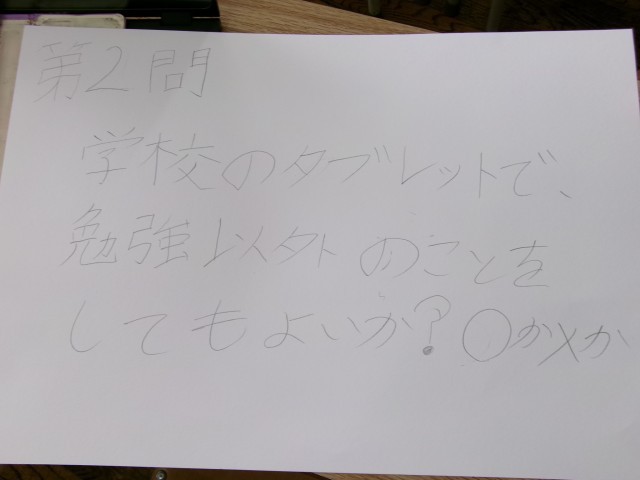 第2問
学校のタブレットで、
勉強以外のことを
してもよいか?○か×か